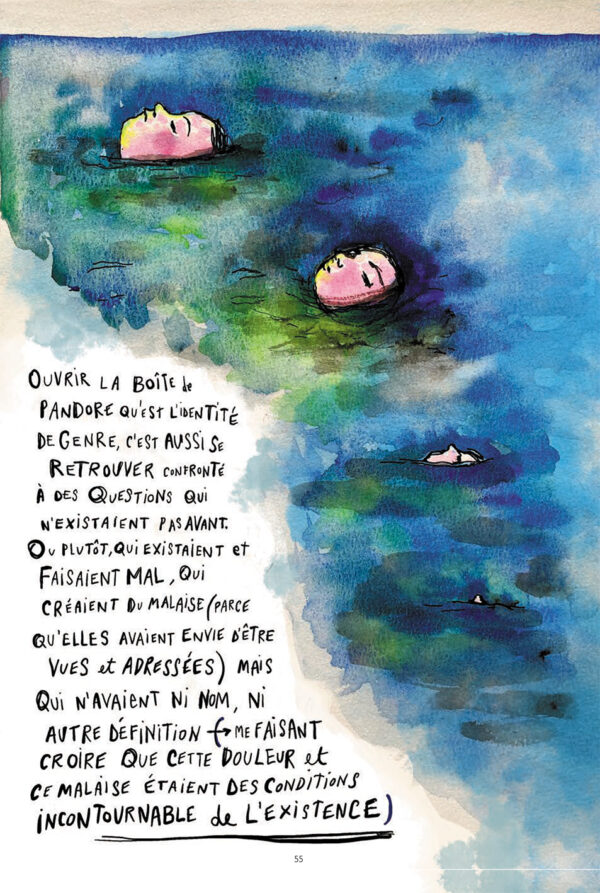 OUVRIR LA BOÎTE de
PANDORE QU'EST L'IDENTITÉ
DE GENRE, C'EST AUSSI SE
RETROUVER CONFRONTÉ
À DES QUESTIONS QUI
N'EXISTAIENT PAS AVANT.
OU PLUTÔT, QUI EXISTAIENT et
FAISAIENT MAL, QUI
CRÉAIENT DU MALAISE (PARCE
QU'ELLES AVAIENT ENVIE D'ÊTRE
VUES et ADRESSÉES) MAIS
QUI N'AVAIENT NI NOM, NI
AUTRE DÉFINITION (→ ME FAISANT
CROIRE QUE CETTE DOULEUR et
CE MALAISE ÉTAIENT DES CONDITIONS
INCONTOURNABLE de L'EXISTENCE)
55